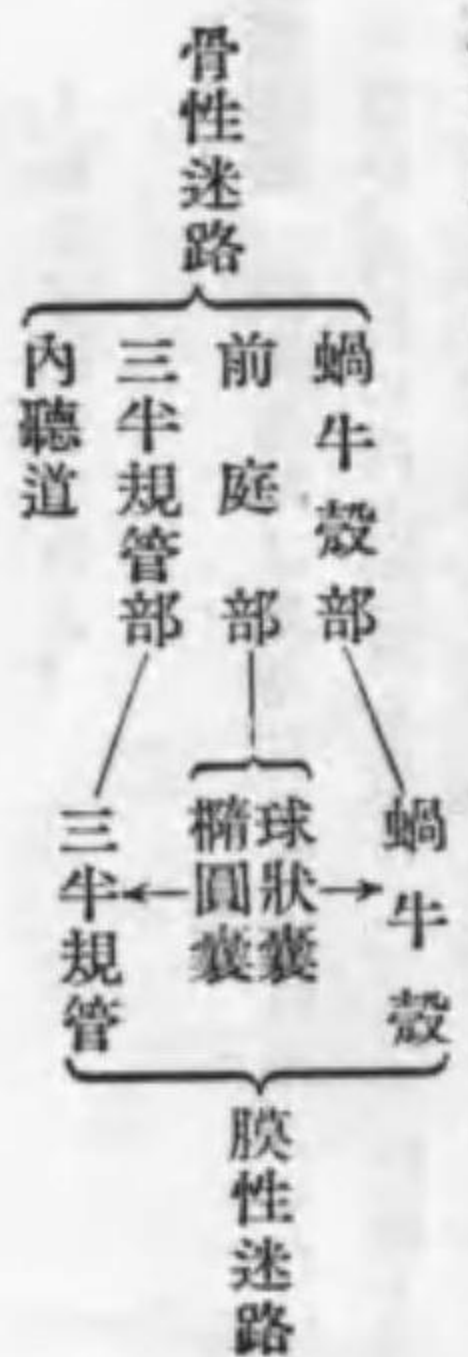 骨性迷路
蝸牛殼部
前庭部
三半規管部
內聽道
蝸牛殼
球狀囊
橢圓囊
三半規管
膜性迷路